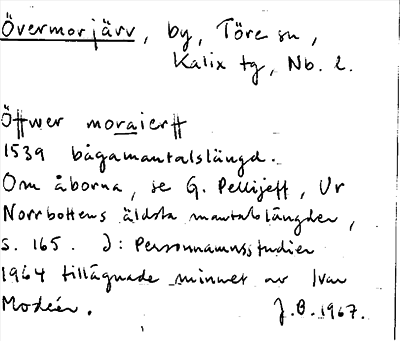 Övermorjärv, by, Töre sn,
Kalix tg, Nb. l.
Öffwer moraierff
1539 bågamantalslängd.
Om åborna, se G. Pellijeff, Ur
Norrbottens äldsta mantalslängder,
s. 165. I: Personnamnsstudier
1964 tillägnade minnet av Ivar
Modéer. J.B. 1967.